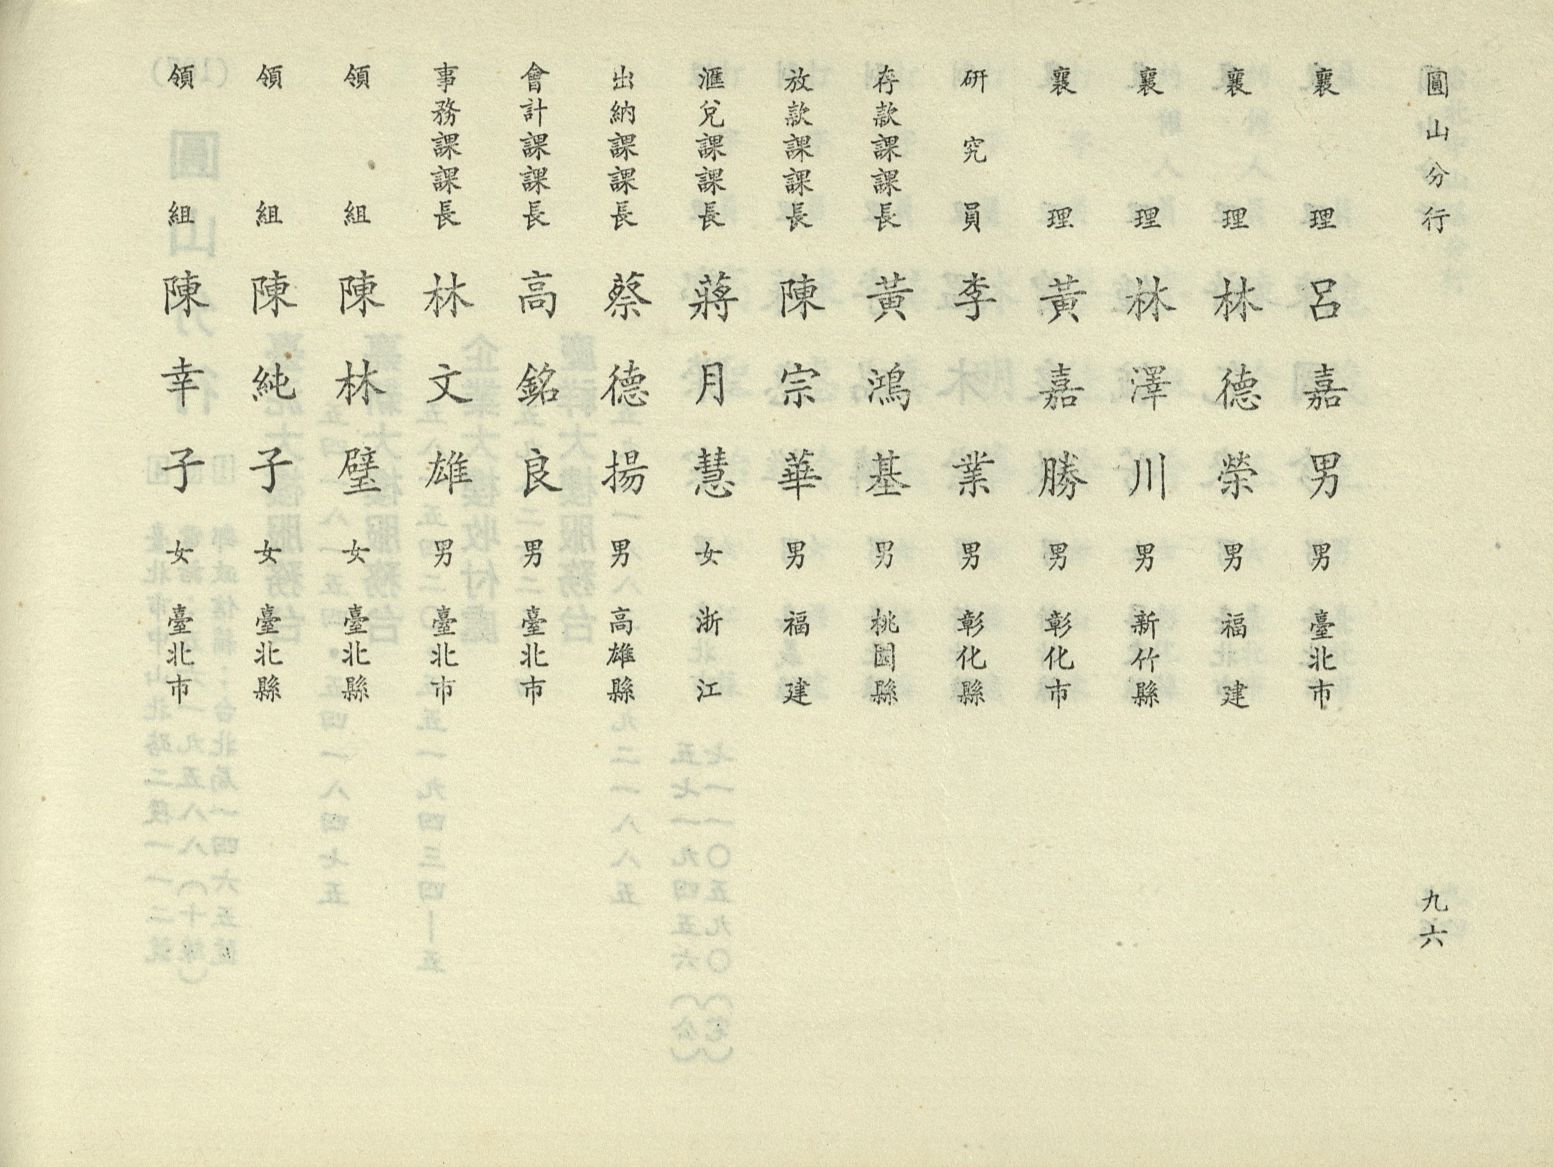 圓山分行
九六
襄理 呂嘉男 男 臺北市
襄理 林德榮 男 福建
襄理 林澤川 男 新竹縣
襄理 黃嘉勝 男 彰化市
研究員 李業 男 彰化縣
存款課課長 黃鴻基 男 桃園縣
放款課課長 陳宗華 男 福建
滙兌課課長 蔣月慧 女 浙江
出納課課長 蔡德揚 男 高雄縣
會計課課長 高銘良 男 臺北市
事務課課長 林文雄 男 臺北市
領組 陳林璧 女 臺北縣
領組 陳純子 女 臺北縣
領組 陳幸子 女 臺北市